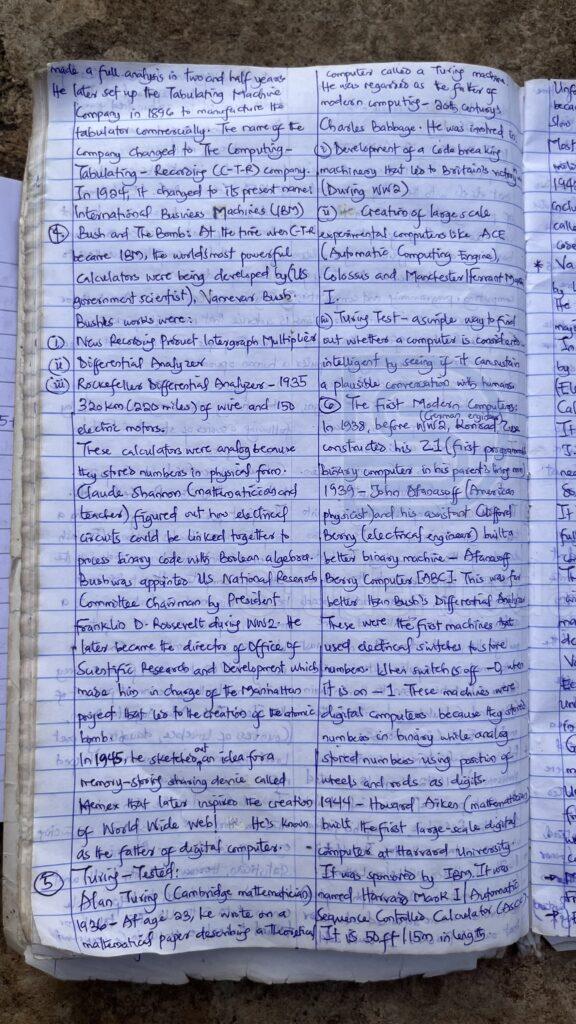 made a full analysis in two and half years
He later set up the Tabulating Machine
Company in 1896 to manufacture the
tabulator commercially. The name of the
company changed to The Computing-
Tabulating - Recording (C-T-R) company.
In 1924, it changed to its present name:
International Business Machines (IBM)
4 Bush and The Bomb: At the time when C-T-R
became IBM, the worlds most powerful
calculators were being developed by (US
government scientist), Vannevar Bush.
Bush's works were:
(i) New Recording Product Intergraph Multiplier
(ii) Differential Analyzer
(iii) Rockefeller Differential Analyzer - 1935
320km (220 miles) of wire and 150
electric motors.
These calculators were analog because
they stored numbers in physical form.
Claude Shannon (mathematician and
teacher) figured out how electrical
circuits could be linked together to
process binary code with Boolean algebra.
Bush was appointed U.S. National Research
Committee Chairman by President
Franklin D. Roosevelt during WW2. He
later became the director of Office of
Scientific Research and Development which
made him in charge of the Manhattan
project that led to the creation of the atomic
bomb.
In 1945, he sketched out an idea for a
memory-storing sharing device called
Memex that later inspired the creation
of World Wide Web. He's known
as the father of digital computer.
5 Turing - Tested:
Alan Turing (Cambridge mathematician)
1936 - At age 23, he wrote on a
mathematical paper describing a theoretical
computer called a Turing machine.
He was regarded as the father of
modern computing - 20th century's
Charles Babbage. He was involved in
(i) Development of a code breaking
machinery that led to Britain's victory
(During WW2)
(ii) Creation of large scale
experimental computers like ACE
(Automatic Computing Engine),
Colossus and Manchester/Ferranti Mark
I.
(iii) Turing Test - a simple way to find
out whether a computer is considered
intelligent by seeing if it can sustain
a plausible conversation with humans.
6 The First Modern Computers:
(German engineer)
In 1938, before WW2, Konrad Zuse
constructed his Z1 (first programmable
binary computer in his parent's living room)
1939 - John Atanasoff (American
physicist) and his assistant Clifford
Berry (electrical engineer) built a
better binary machine - Atanasoff
Berry Computer [ABC]. This was far
better than Bush's Differential Analyzer
These were the first machines that
used electrical switches to store
numbers. When switch is off - 0, when
it is on - 1. These machines were
digital computers because they stored
numbers in binary while analog
stored numbers using position of
wheels and rods as digits.
1944 - Howard Aiken (mathematician)
built the first large-scale digital
computer at Harvard University.
It was sponsored by IBM. It was
named Harvard Mark I / Automatic
Sequence Controlled Calculator (ASCC)
It is 50ft/15m in length